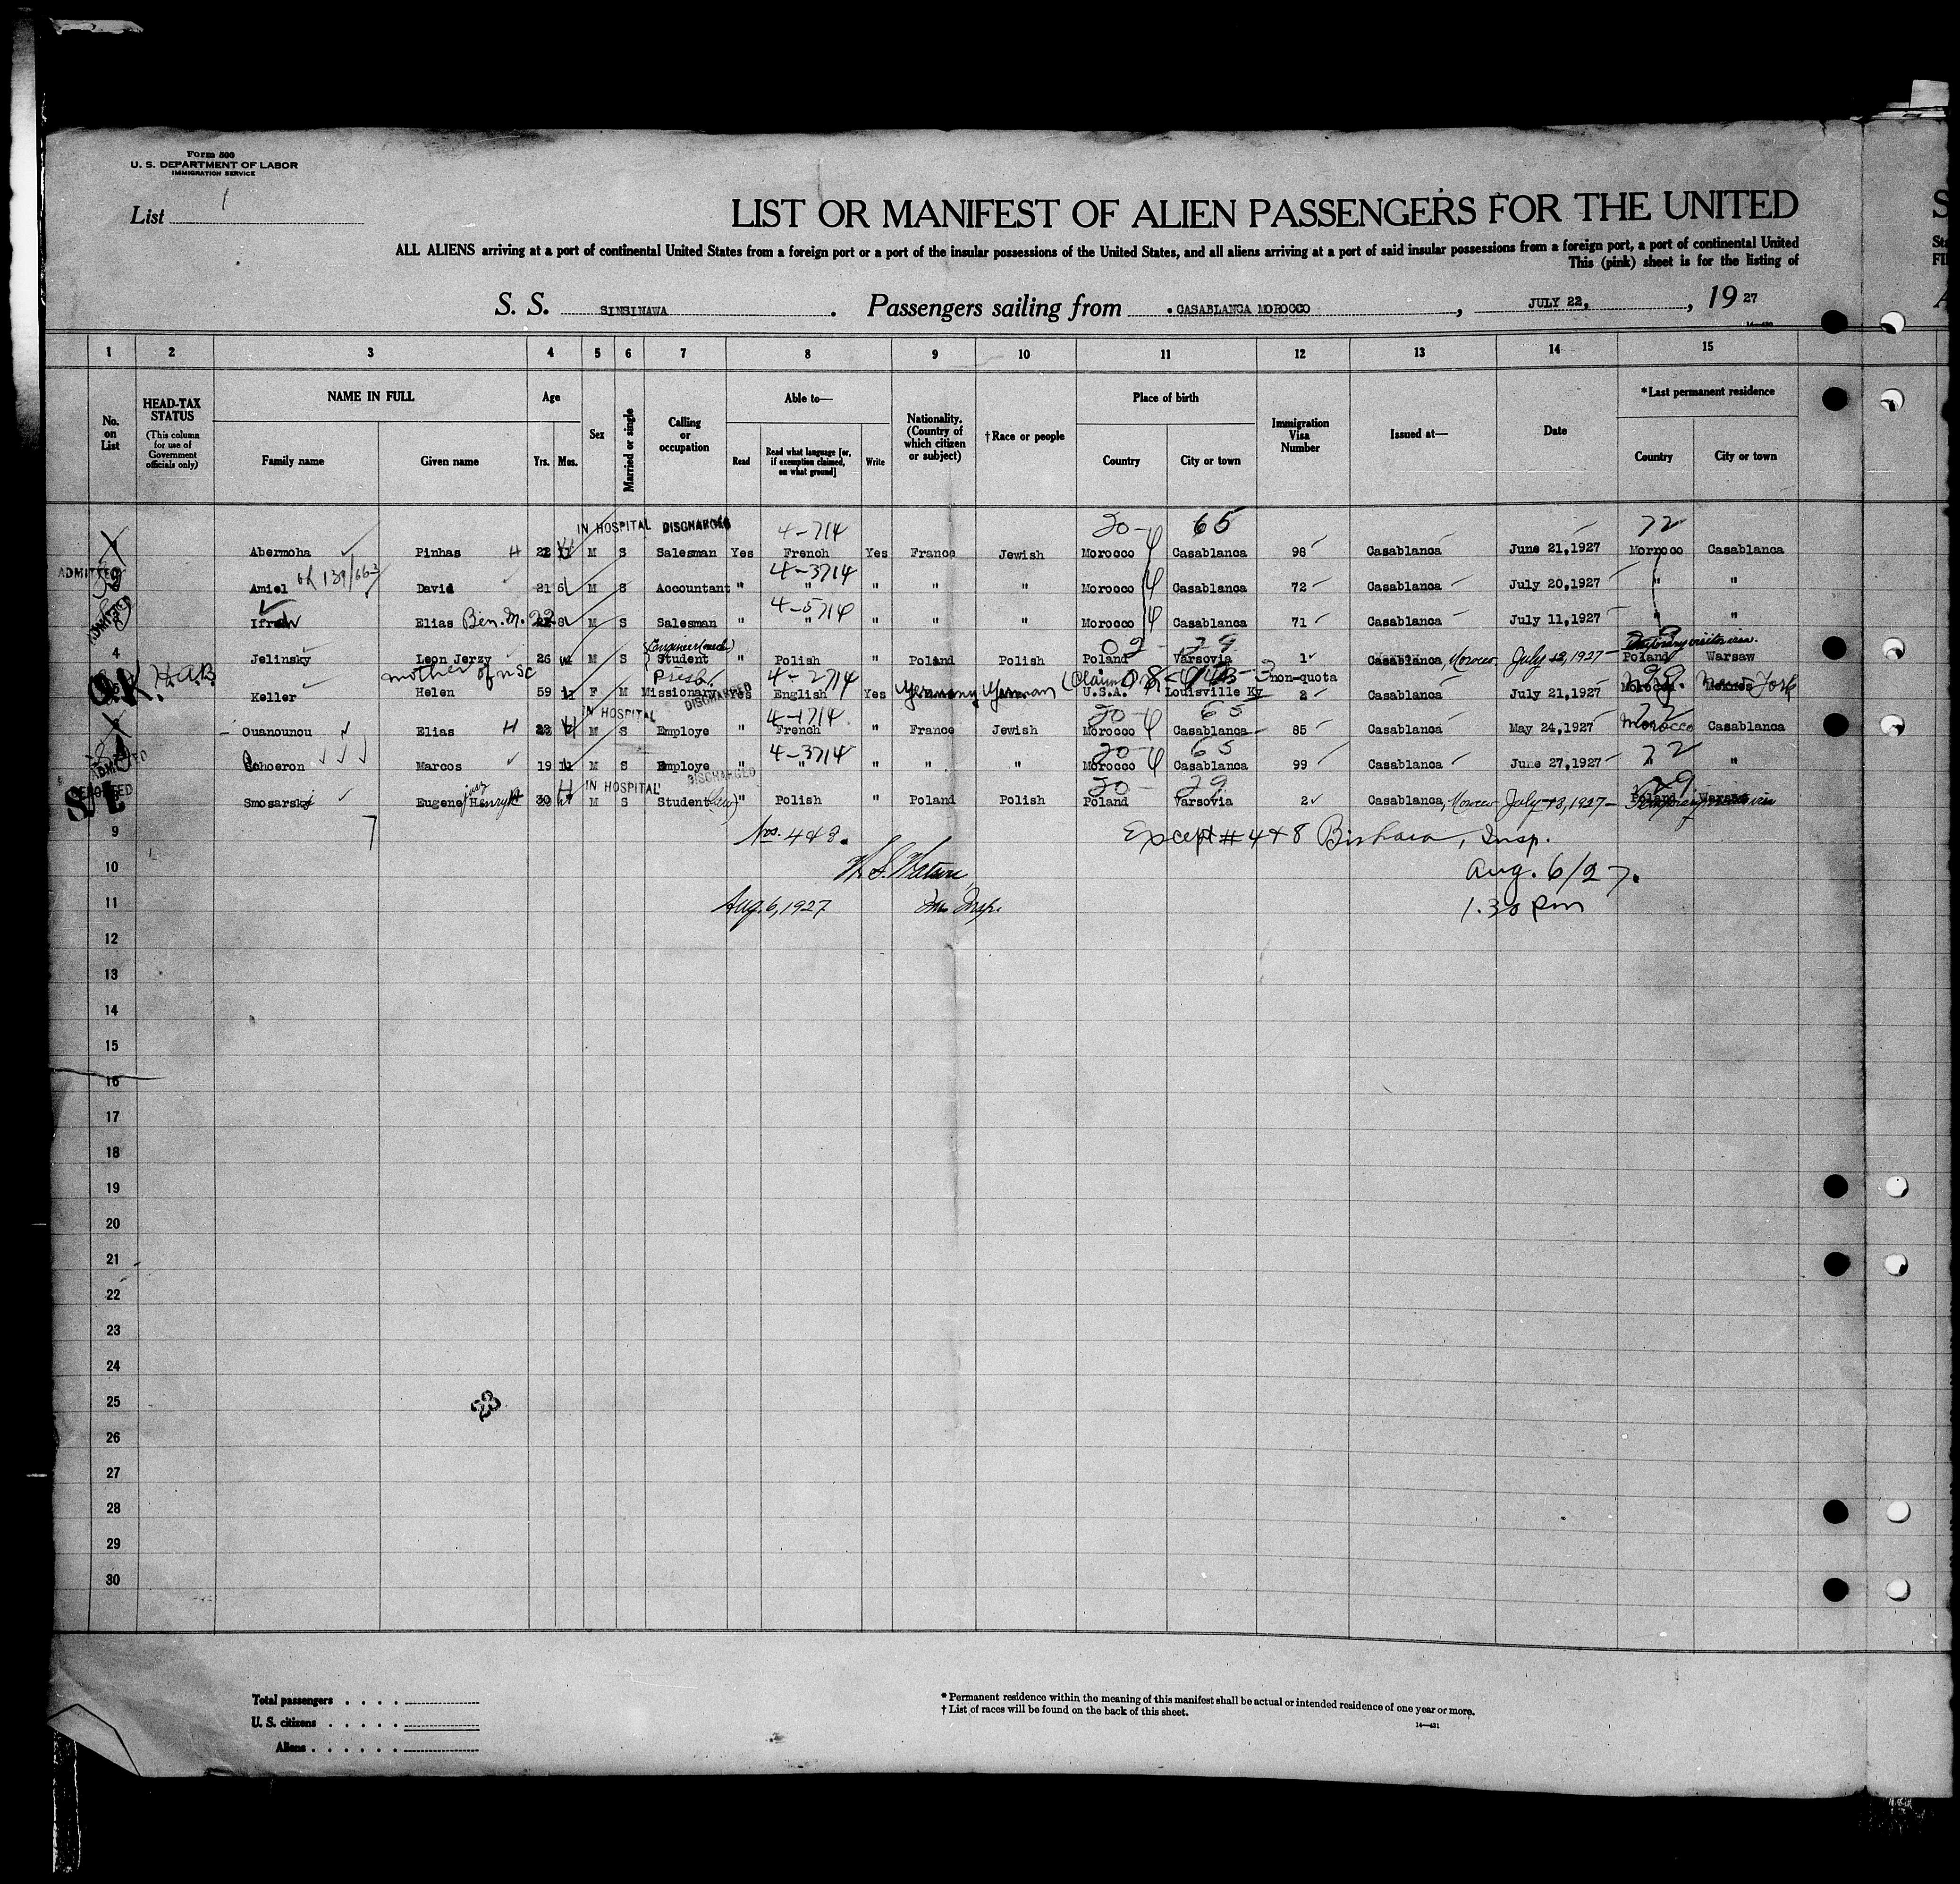 Form 500
U. S. DEPARTMENT OF LABOR
IMMIGRATION SERVICE
List 1
LIST OR MANIFEST OF ALIEN PASSENGERS FOR THE UNITED
ALL ALIENS arriving at a port of continental United States from a foreign port or a port of the insular possessions of the United States, and all aliens arriving at a port of said insular possessions from a foreign port, a port of continental United
This (pink) sheet is for the listing of
S. S. SINSINAWA. Passengers sailing from CASABLANCA MOROCCO, JULY 22, 19 27
1 2 3 4 5 6 7 8 9 10 11 12 13 14 15
No. on List
HEAD-TAX STATUS (This column for use of Government officials only)
NAME IN FULL
Family name Given name
Age
Yrs. Mos.
Sex
Married or single
Calling or occupation
Able to—
Read
Read what language [or, if exemption claimed, on what ground]
Write
Nationality. (Country of which citizen or subject)
†Race or people
Place of birth
Country City or town
Immigration Visa Number
Issued at—
Date
*Last permanent residence
Country City or town
IN HOSPITAL DISCHARGED 4-714 20- 65 72
Abermoha Pinhas H 22 M S Salesman Yes French Yes France Jewish Morocco Casablanca 98 Casablanca June 21,1927 Morroco Casablanca
ADMITTED 139/663 4-3714
Amiel David 21 6 M S Accountant " " " " " Morocco Casablanca 72 Casablanca July 20,1927 " "
ADMITTED 4-5714
Elias Ben. M. 22 M S Salesman " " " " " Morocco Casablanca 71 Casablanca July 11,1927 " "
Engineer (mech) 02 - 29 Temporary visitor visa.
4 Jelinsky Leon Jerzy 26 M S Student " Polish " Poland Polish Poland Varsovia 1 Casablanca, Morocco July 12,1927 Poland Warsaw
O.K. H.A.B. mother of n sc Presb. 4-2714 Claims non-quota
Keller Helen 59 11 F M Missionary Yes English Yes Germany German U.S.A. Louisville Ky 2 Casablanca July 21,1927 York
DISCHARGED
IN HOSPITAL 4-1714 20- 65 72
Ouanounou Elias H M S Employe " French " France Jewish Morocco Casablanca 85 Casablanca May 24,1927 Morocco Casablanca
ADMITTED 4-3714 20- 65 72
Choeron Marcos 19 11 M S Employe " " " " " Morocco Casablanca 99 Casablanca June 27,1927 " "
S/I DEPORTED H IN HOSPITAL DISCHARGED 20- 29 29
Smosarski Eugene Henryk 30 M S Student " Polish " Poland Polish Poland Varsovia 2 Casablanca, Morocco July 13,1927 Poland
9 Nos. 4 & 8. Except # 4 & 8 Bishara, Insp.
10 W. S. Watson Aug. 6/27.
11 Aug. 6, 1927 Im Insp. 1.30 Pm
12
13
14
15
16
17
18
19
20
21
22
23
24
25
26
27
28
29
30
23
Total passengers . . . .
U. S. citizens . . . . .
Aliens . . . . . .
* Permanent residence within the meaning of this manifest shall be actual or intended residence of one year or more.
† List of races will be found on the back of this sheet.
14—431